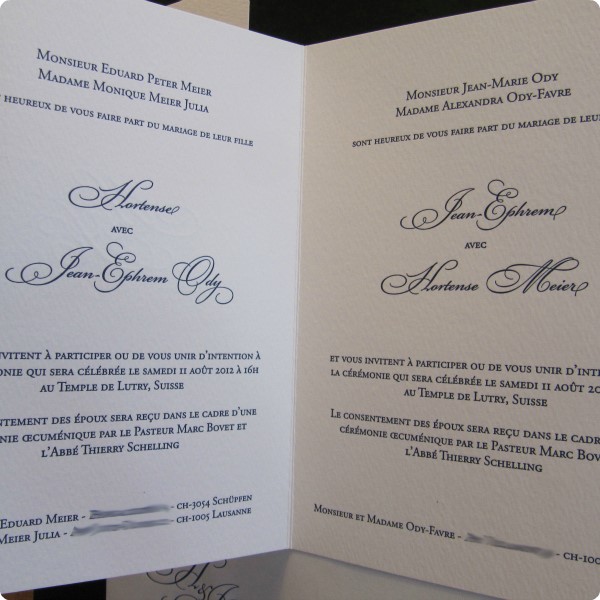 Monsieur Eduard Peter Meier
Madame Monique Meier Julia
heureux de vous faire part du mariage de leur fille
Hortense
avec
Jean-Ephrem Ody
invitent à participer ou de vous unir d'intention à
qui sera célébrée le samedi 11 août 2012 à 16h
au Temple de Lutry, Suisse
des époux sera reçu dans le cadre d'une
œcuménique par le Pasteur Marc Bovet et
l'Abbé Thierry Schelling
Eduard Meier - - CH-3054 Schüpfen
Meier Julia - - CH-1005 Lausanne
Monsieur Jean-Marie Ody
Madame Alexandra Ody-Favre
sont heureux de vous faire part du mariage de leur
Jean-Ephrem
avec
Hortense Meier
et vous invitent à participer ou de vous unir d'inten
la cérémonie qui sera célébrée le samedi 11 août 20
au Temple de Lutry, Suisse
Le consentement des époux sera reçu dans le cadr
cérémonie œcuménique par le Pasteur Marc Bov
l'Abbé Thierry Schelling
Monsieur et Madame Ody-Favre - - CH-100